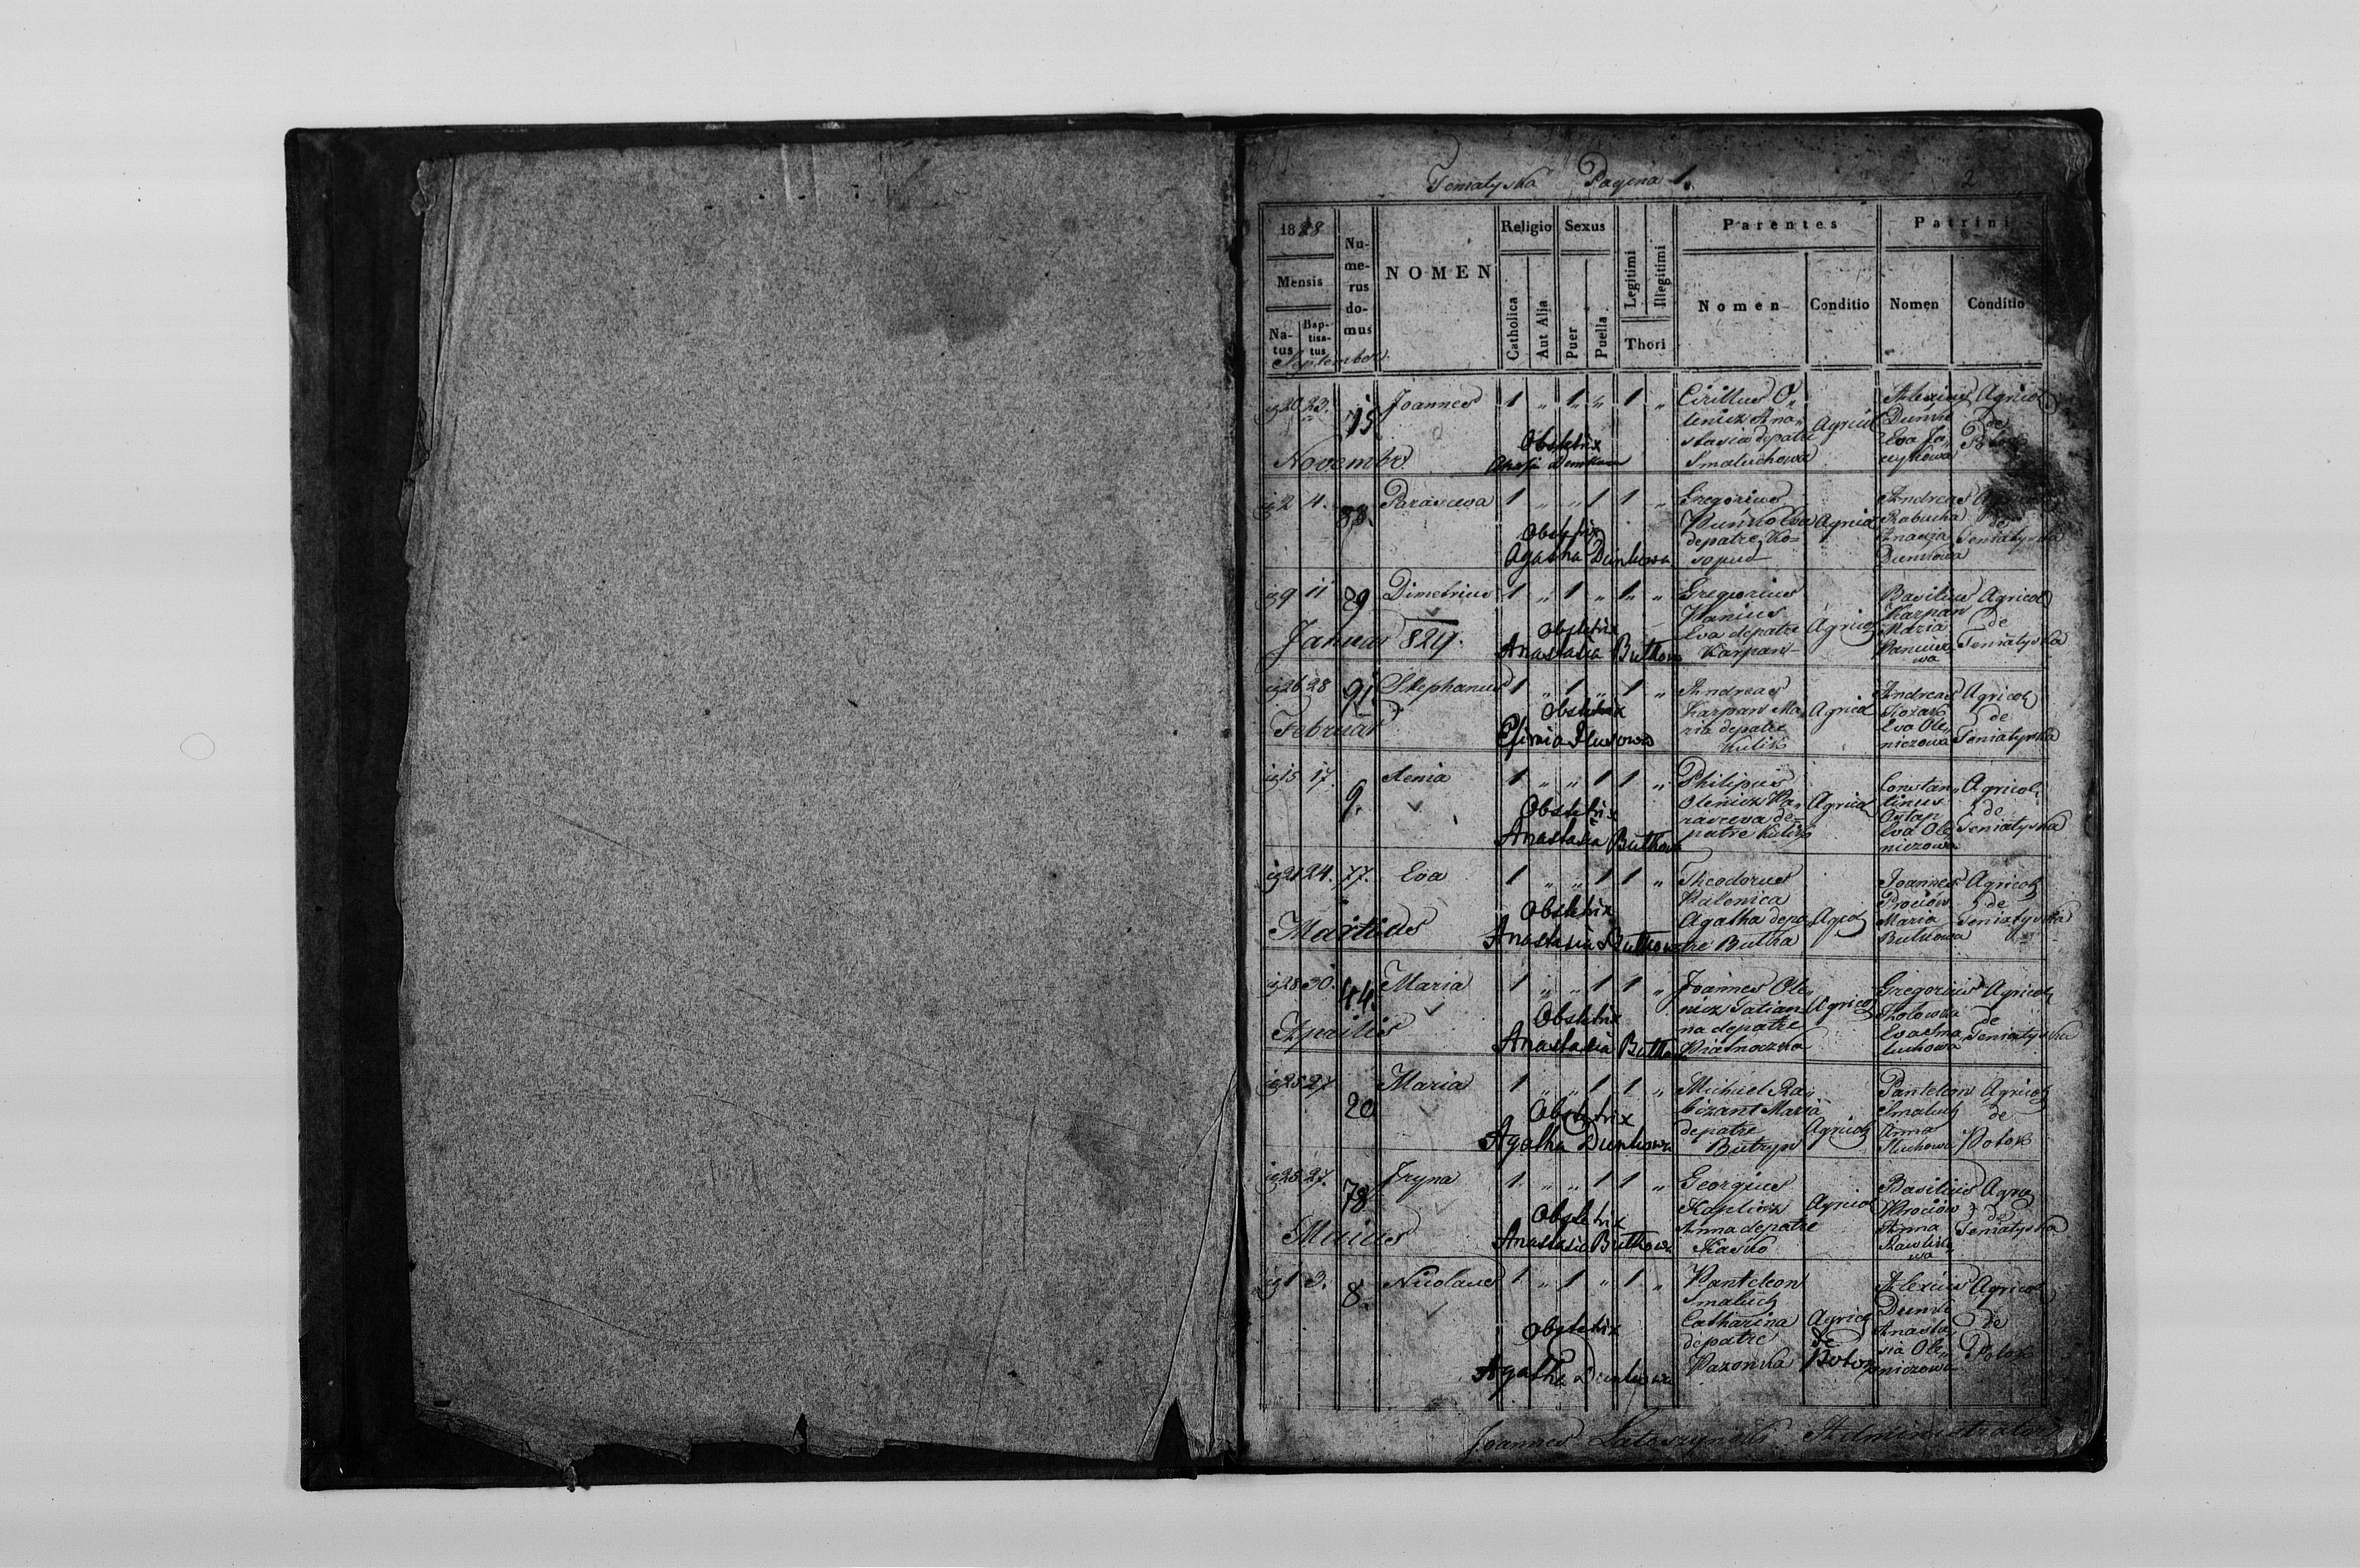 Teniatyska Pagina 1. 2
1828
Mensis
Na-
tus
Bap-
tisa-
tus
Nu-
me-
rus
do-
mus
NOMEN
Religio
Catholica
Aut Alia
Sexus
Puer
Puella
Legitimi
Illegitimi
Thori
Parentes
Nomen
Conditio
Patrini
Nomen
Conditio
September
20 23. 15 Joannes 1 „ 1 „ 1 „
Cirillus O„
lenicz Ana„
stasia depatre
Smaluchowa
Agricol
Alexius
Eva
Agricol
de
Potok
Obstetrix
Novembr
2 4. 88. Parascewa 1 „ „ 1 1 „
Gregorius
Eva
depatre Ko-
Agricol
Andreas
Dumkowa
de
Teniatyska
Obstetrix
Agatha Dumkowa
9 11 89 Dimetrius 1 „ 1 „ 1 „
Gregorius
Eva depatre
Karpan
Agricol
Basilius
Karpan
Maria
wa
Agricol
de
Teniatyska
Obstetrix
Anastasia Butkowa
Januar 829.
26 28 91. Stephanus 1 „ 1 „ 1 „
Andreas
Karpan Ma„
ria depatre
Kulik
Agricol
Andreas
Eva Ole„
niczowa
Agricol
de
Teniatyska
Obstetrix
Februar
15 17. 9. Xenia 1 „ „ 1 1 „
Philipus
Olenicz Pa„
rascewa de-
patre Kulik
Agricol
Constan„
tinus
Ostap
Eva Ole„
niczowa
Agricol
de
Teniatyska
Obstetrix
Anastasia Butkowa
21 24. 77. Eva 1 „ „ 1 1 „
Theodorus
Kalenica
Agatha depa„
tre Butka
Agricol
Joannes
Prociów
Maria
Butkowa
Agricol
de
Teniatyska
Obstetrix
Anastasia Butkowa
Martius
28 30. 44. Maria 1 „ „ 1 1 „
Joannes Ole„
nicz Tatian„
na depatre
Agricol
Gregorius
Eva Sma„
luchowa
Agricol
de
Teniatyska
Obstetrix
Anastasia Butkowa
Aprilis
25 27 20 Maria 1 „ „ 1 1 „
Michael Ra„
bizant Maria
depatre
Butryn
Agricol
Panteleon
Smaluch
Anna
Agricol
de
Potok
Obstetrix
Agatha Dumkowa
25 27. 78 Iryna 1 „ „ 1 1 „
Georgius
Anna depatre
Agricol
Basilius
Prociów
Anna
wa
de
Teniatyska
Obstetrix
Anastasia Butkowa
Maius
1 3. 8. Nicolaus 1 „ 1 „ 1 „
Panteleon
Smaluch
Catharina
depatre
Agricol
de
Potok
Alexius
Anasta„
sia Ole„
niczowa
Agricol
de
Potok
Obstetrix
Agatha Dumkowa
Joannes Administrator